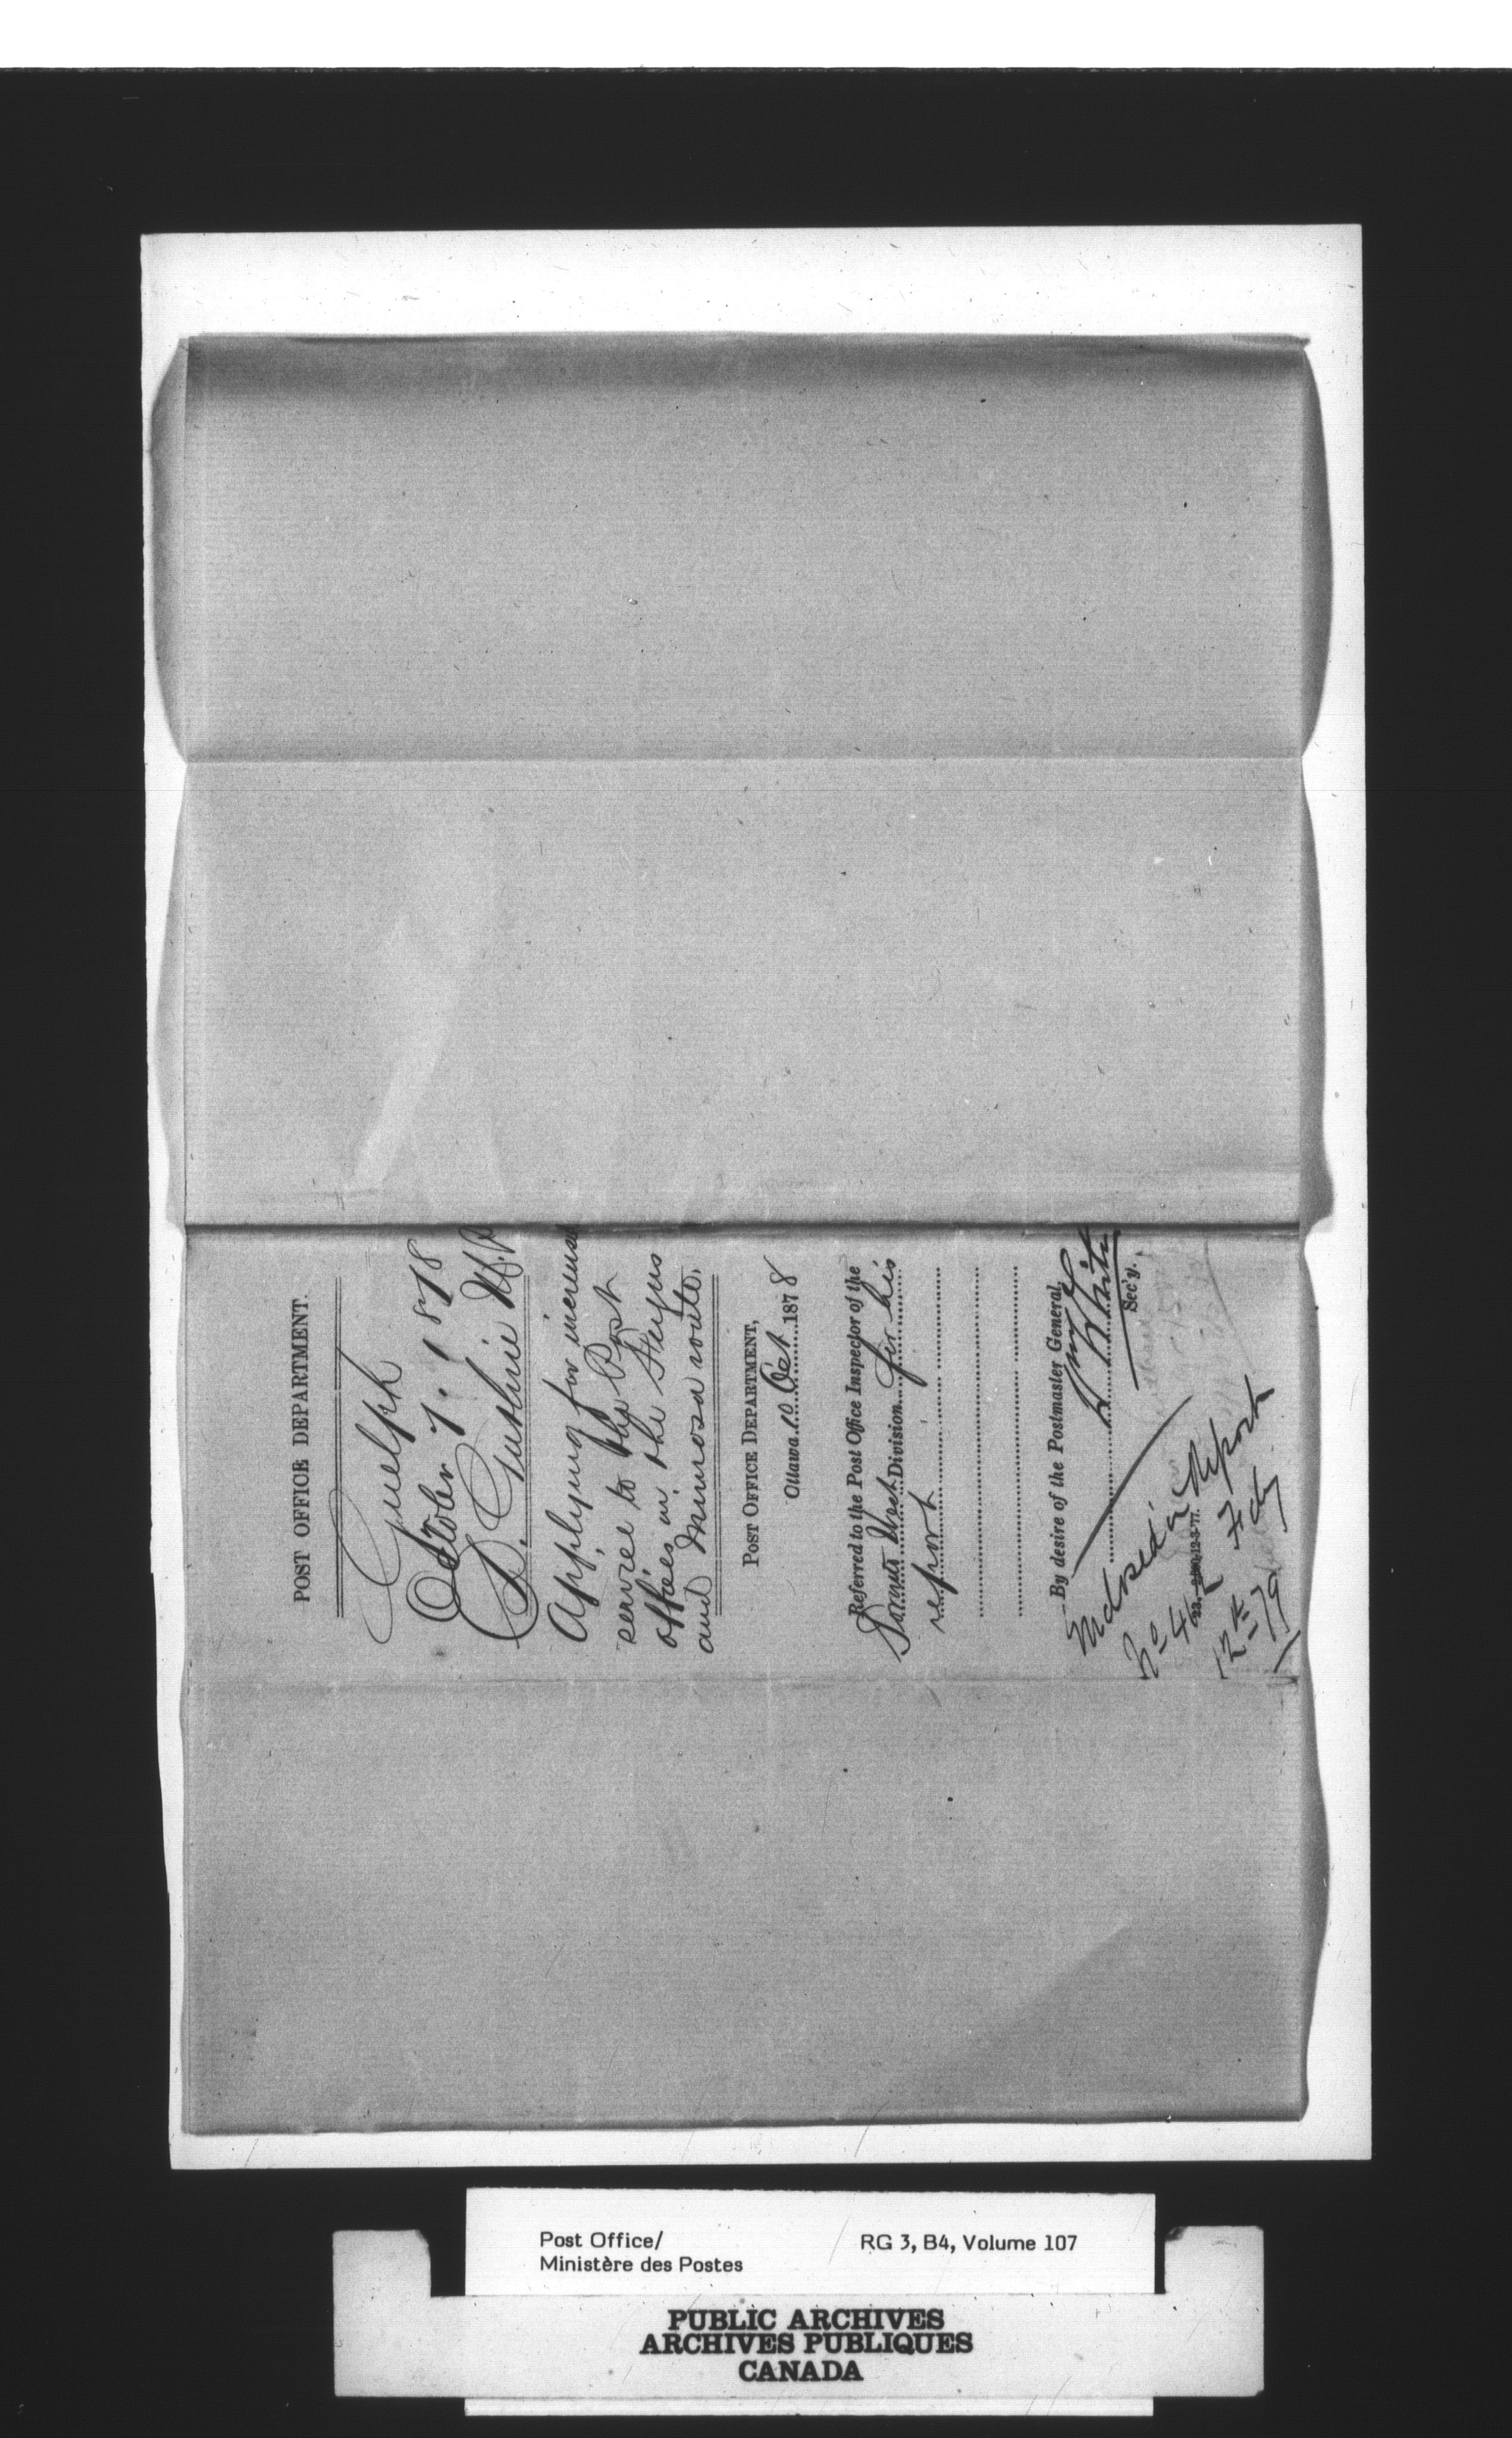 POST OFFICE DEPARTMENT.
Guelph
October 7. 1878
D. Guthrie M.P.
Applying for increased
service to the Post
offices in the Fergus
and Mimosa route.
POST OFFICE DEPARTMENT,
Ottawa 10 Oct 1878
Referred to the Post Office Inspector of the
Division for his
report
By desire of the Postmaster General,
White
Sec'y.
Report
No 46
23. 2,000-12-3-77.
12th Fby
79
Post Office/
Ministère des Postes
RG 3, B4, Volume 107
PUBLIC ARCHIVES
ARCHIVES PUBLIQUES
CANADA